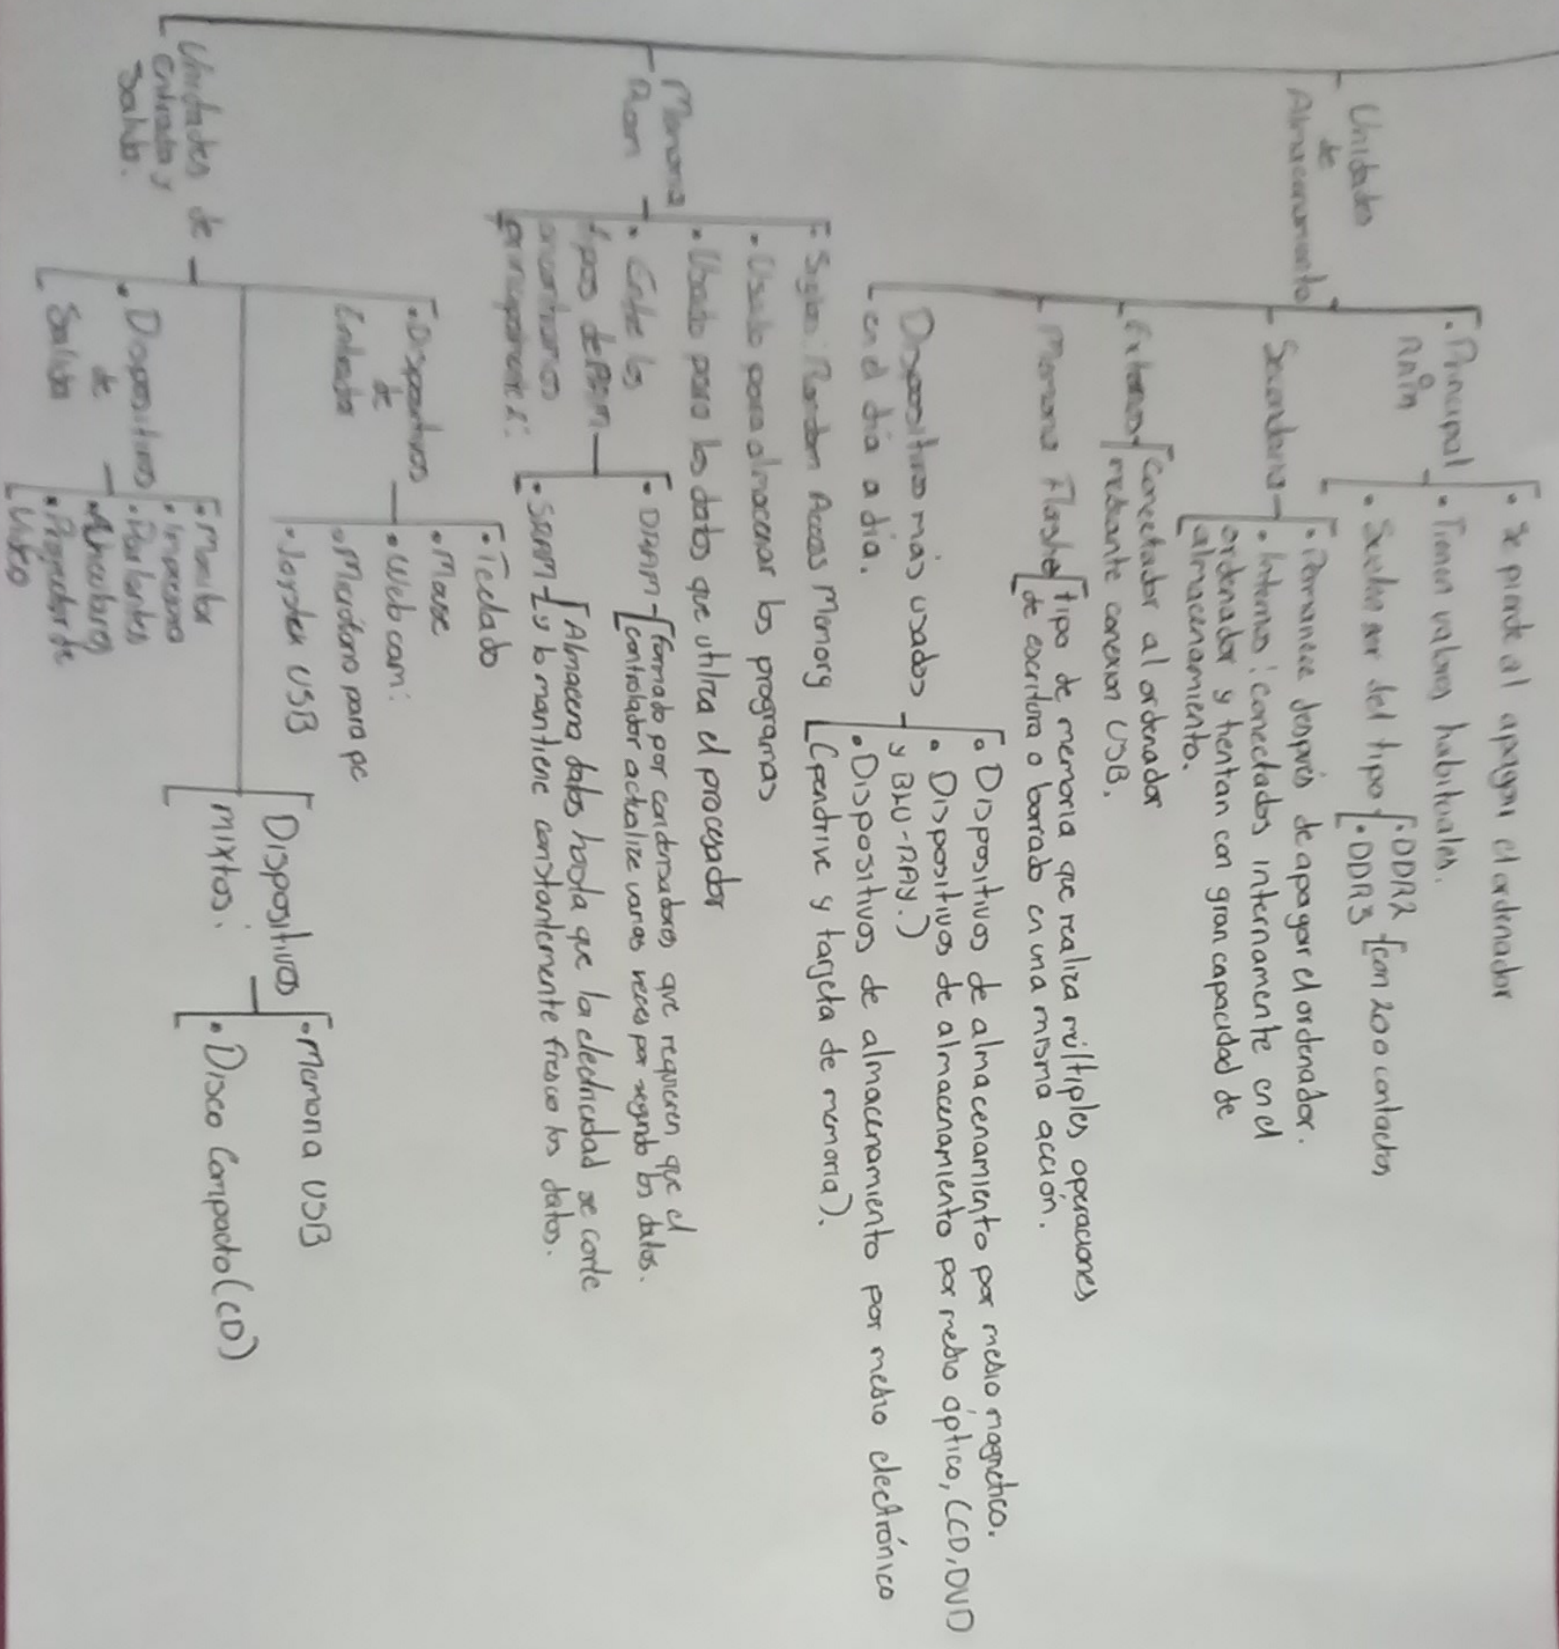 Unidades
de
Almacenamiento
• Principal
o
RAM
• Se pierde al apagar el ordenador
• Tienen valores habituales.
• Suelen ser del tipo
• DDR2
• DDR3
con 200 contactos
Secundaria
• Permanece después de apagar el ordenador.
• Internos: conectados internamente en el
ordenador y
con gran capacidad de
almacenamiento.
Externos
Conectador al ordenador
mediante conexion USB.
Memoria Flash
tipo de memoria que realiza múltiples operaciones
de escritura o borrado en una misma acción.
Dispositivos más usados
en el día a día.
• Dispositivos de almacenamiento por medio magnetico.
• Dispositivos de almacenamiento por medio óptico, (CD, DVD
y BLU-RAY.)
• Dispositivos de almacenamiento por medio electrónico
(pendrive y targeta de memoria).
Memoria
Ram
• Siglas: Random Acces Memory
• Usado para almacenar los programas
• Usado para los datos que utiliza el procesador
• Entre los
tipos de RAM
encontramos
principalmente:
• DRAM
formado por condensadores que requieren que el
controlador actualize varias veces por segundo los datos.
• SRAM
Almacena datos hasta que la electricidad se corte
y lo mantiene constantemente fresco los datos.
Unidades de
Entrada y
Salida.
• Dispositivos
de
Entrada
• Teclado
• Mouse
• Web cam:
• Micrófono para pc
• Joystick USB
Dispositivos
mixtos:
• Memoria USB
• Disco Compacto (CD)
• Dispositivos
de
Salida
• Monitor
• Impresora
• Parlantes
• Auriculares
• Proyector de
Video